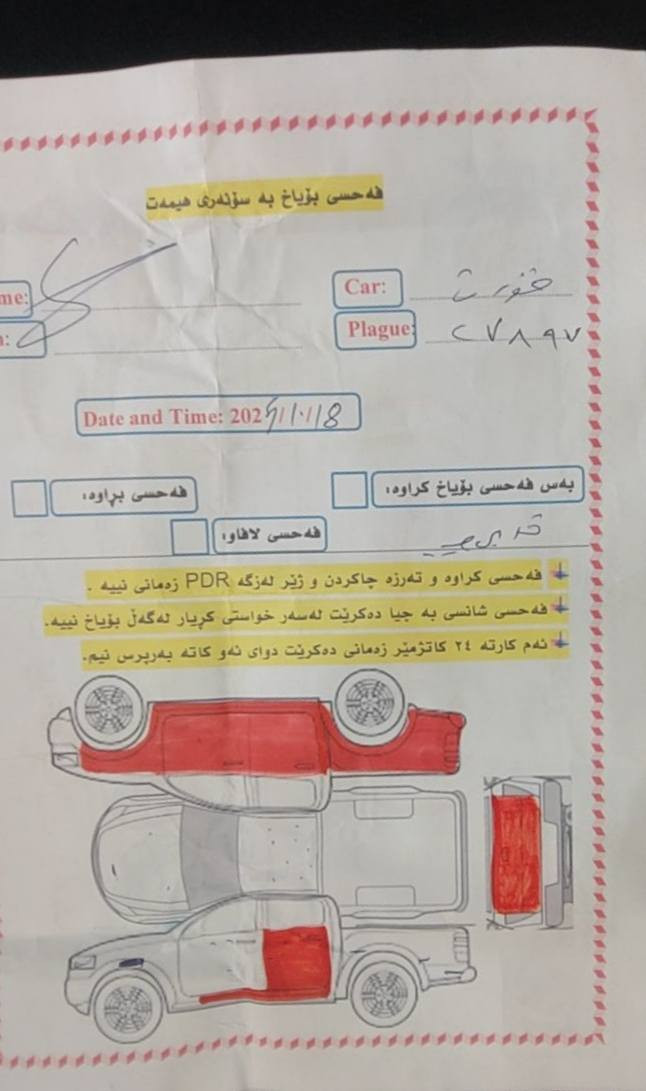 فەحسی بۆیاخ بە سۆنەری هیمەت
me:
Car:
Plague: ٢٧٨٩٧
Date and Time: 202
فەحسی براوە:
بەس فەحسی بۆیاخ کراوە:
فەحسی لافاو:
فەحسی کراوە و تەرزە چاکردن و ژێر لەزگە PDR زەمانی نییە .
فەحسی شانسی بە جیا دەکرێت لەسەر خواستی کڕیار لەگەڵ بۆیاخ نییە.
ئەم کارتە ٢٤ کاتژمێر زەمانی دەکرێت دوای ئەو کاتە بەرپرس نیم.